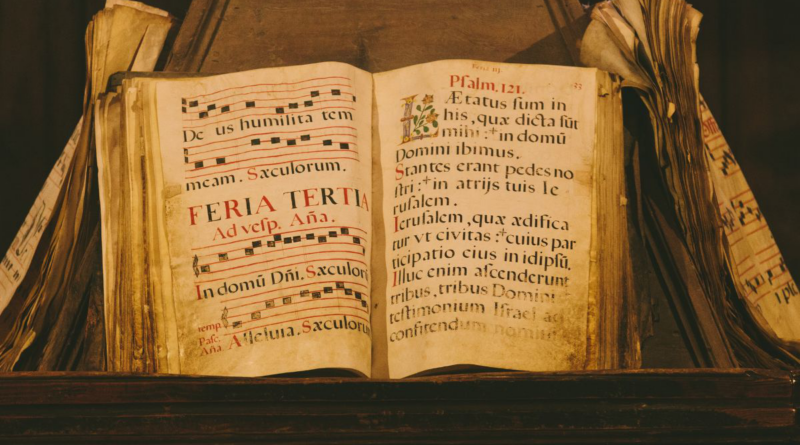 De us humilita tem
meam. Sæculorum.
FERIA TERTIA
Ad vesp. Aña.
In domũ Dñi. Sæculor
temp.
Pasc.
Aña. Alleluia. Sæculoru
Psalm. 121.
LÆtatus sum in
his, quæ dicta sũt
mihi :+ in domũ
Domini ibimus.
Stantes erant pedes no
stri :+ in atrijs tuis Ie
rusalem.
Ierusalem, quæ ædifica
tur vt civitas :+ cuius par
ticipatio eius in idipsũ.
Illuc enim ascenderunt
tribus, tribus Domini
testimonium Israel ad
confitendum nomini